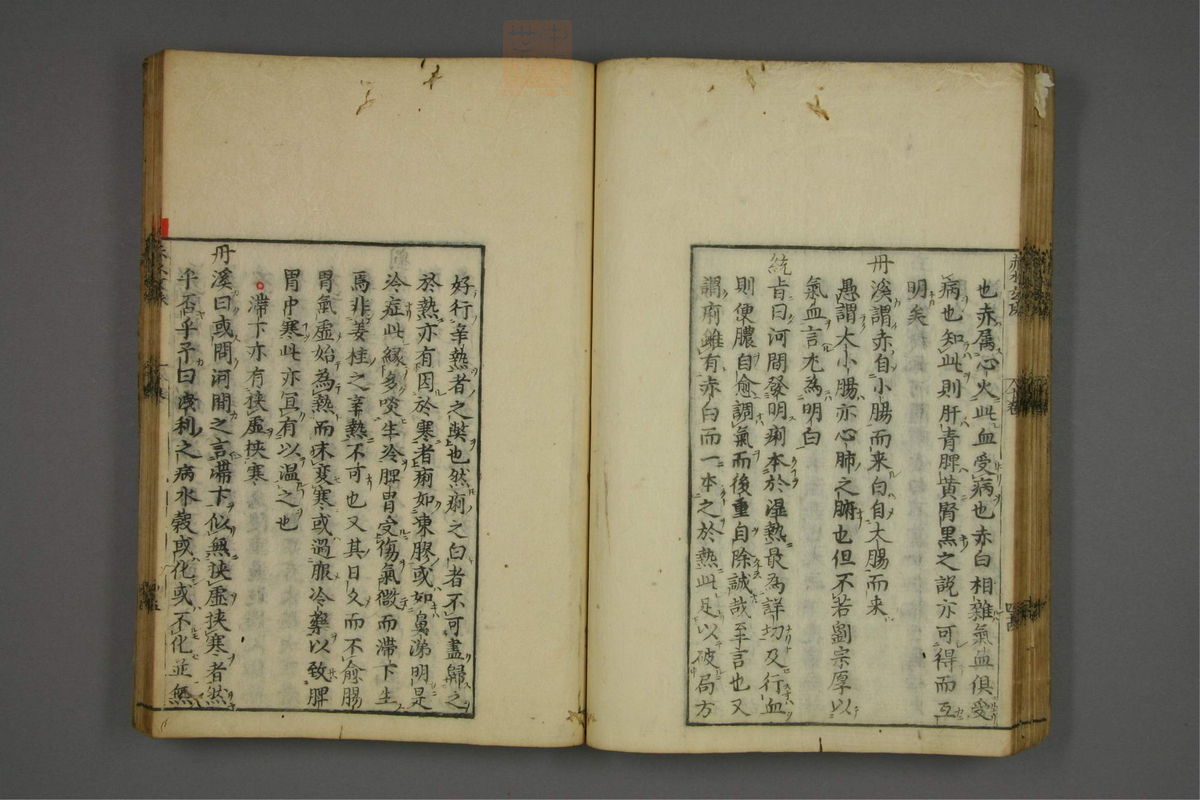 也赤属心火此血受病也赤白相雜氣血俱受
病也知此則肝青脾黄腎黒之説亦可得而互
明矣
丹溪謂赤自小腸而来白自大腸而来
愚謂大小腸亦心肺之腑也但不若劉宗厚以
氣血言尤為明白
統旨曰河間發明痢本於濕熱最為詳切及行血
則便膿自愈調氣而後重自除誠哉至言也又
謂痢雖有赤白而一本之於熱此足以破局方
好行辛熱者之弊也然痢之白者不可盡歸之
於熱亦有因於寒者痢如凍膠或如鼻涕明是
冷症此縁多啖生冷脾胃受傷氣微而滞下生
焉非姜桂之辛熱不可也又其日久而不愈腸
胃氣虚始為熱而末変寒或過服冷藥以致脾
胃中寒此亦冝有以温之也
滞下亦有挾虚挾寒
丹溪曰或問河間之言滞下似無挾虚挾寒者然
乎否乎予曰洩利之病水穀或化或不化並無